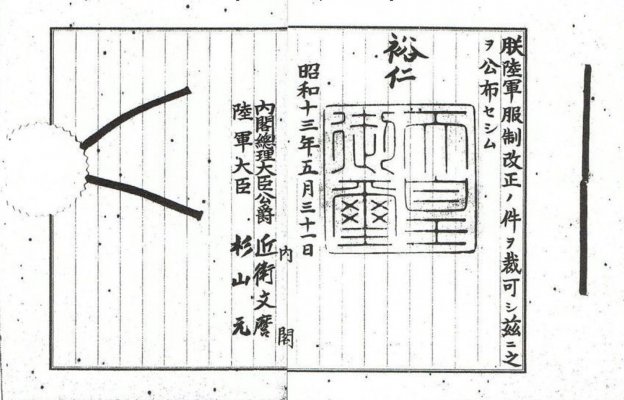 朕陸軍服制改正ノ件ヲ裁可シ茲ニ之
ヲ公布セシム
裕仁
天皇御璽
昭和十三年五月三十一日
内閣
内閣總理大臣公爵 近衛文麿
陸軍大臣 杉山元